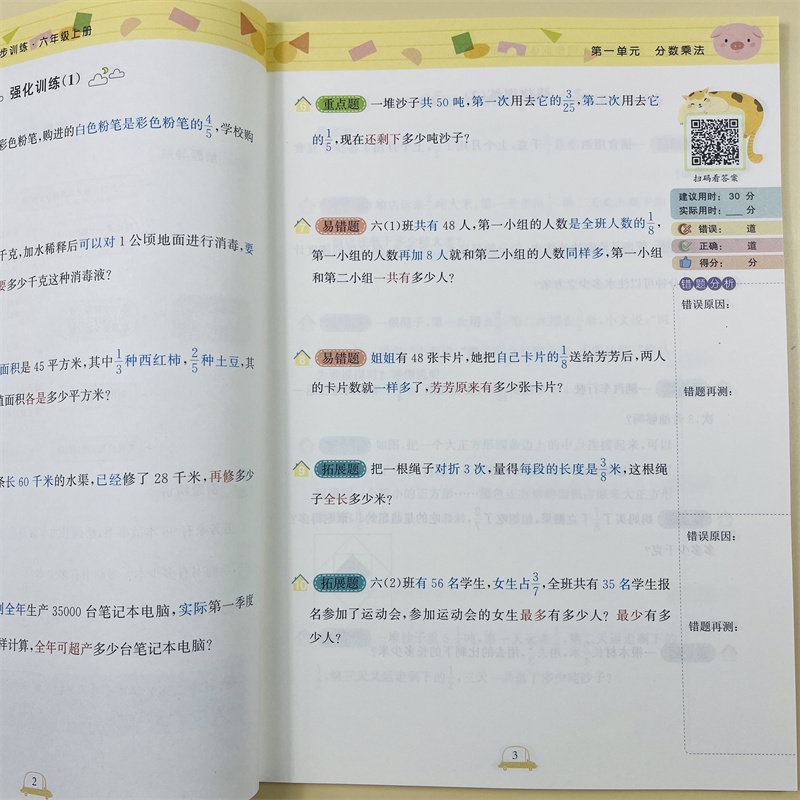 步训练·六年级上册
强化训练(1)
彩色粉笔，购进的白色粉笔是彩色粉笔的4/5，学校购
千克，加水稀释后可以对1公顷地面进行消毒，要
要多少千克这种消毒液？
面积是45平方米，其中1/3种西红柿，2/5种土豆，其
植面积各是多少平方米？
条长60千米的水渠，已经修了28千米，再修多少
划全年生产35000台笔记本电脑，实际第一季度
样计算，全年可超产多少台笔记本电脑？
2
第一单元 分数乘法
6 重点题 一堆沙子共50吨，第一次用去它的3/25，第二次用去它
的1/5，现在还剩下多少吨沙子？
7 易错题 六(1)班共有48人，第一小组的人数是全班人数的1/8，
第一小组的人数再加8人就和第二小组的人数同样多，第一小组
和第二小组一共有多少人？
8 易错题 姐姐有48张卡片，她把自己卡片的1/8送给芳芳后，两人
的卡片数就一样多了，芳芳原来有多少张卡片？
9 拓展题 把一根绳子对折3次，量得每段的长度是3/8米，这根绳
子全长多少米？
10 拓展题 六(2)班有56名学生，女生占3/7，全班共有35名学生报
名参加了运动会，参加运动会的女生最多有多少人？最少有多
少人？
扫码看答案
建议用时：30 分
实际用时：___分
错误： 道
正确： 道
得分： 分
错题分析
错误原因：
错题再测：
错误原因：
错题再测：
3